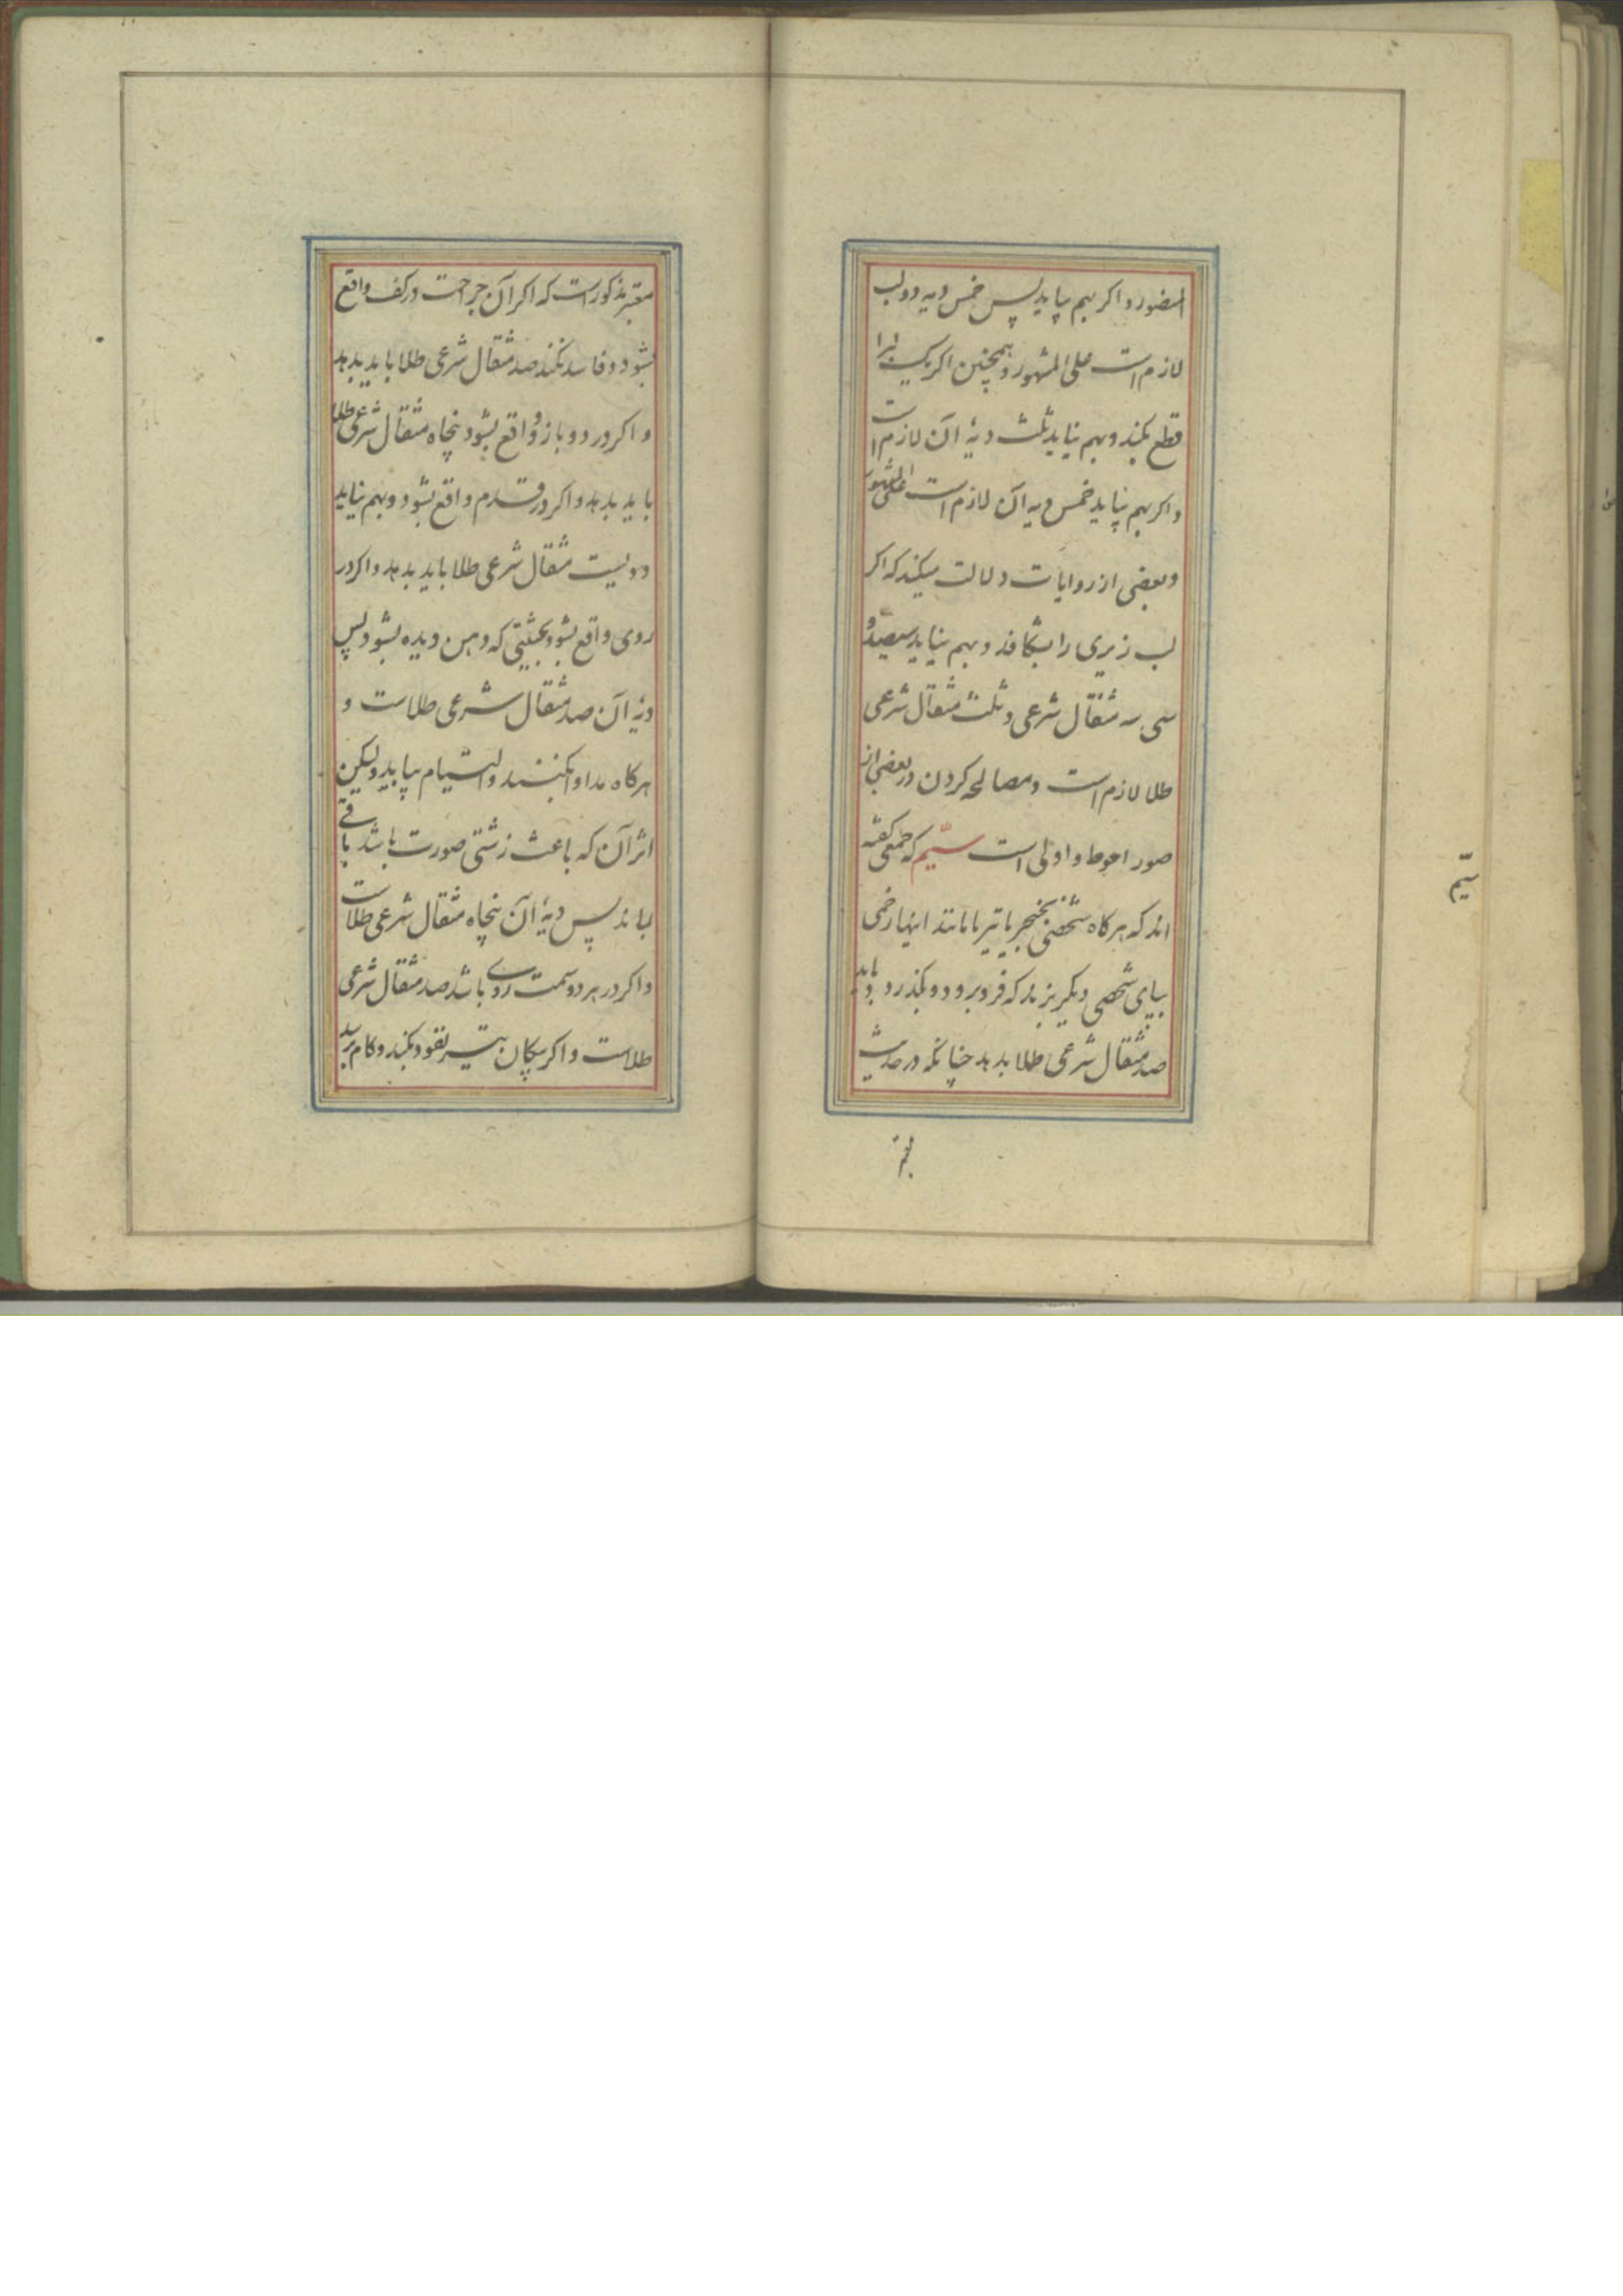 المضور و اکر بهم بیاید پس خمس دیه دو لب
لازم است علی المشهور و همچنین اکر یک لب را
قطع بکند و بهم نیاید ثلث دیهٔ آن لازم است
و اکر بهم بیاید خمس دیه آن لازم است علی المشهور
و بعضی از روایات دلالت میکند که اکر
لب زیری را بشکافد و بهم نیاید سیصد و
سی سه مثقال شرعی و ثلث مثقال شرعی
طلا لازم است و مصالحه کردن در بعضی از
صور احوط و اولی است سیّم که جمعی کفته
اند که هرکاه شخصی بخنجر یا تیر یا مانند اینها زخمی
بپای شخصی دیکر بزند که فرو برود و بکذرد باید
صد مثقال شرعی طلا بدهد چنانکه در حدیث
سیّم
معتبر مذکور است که اکر آن جراحت در کف واقع
بشود و فاسد نکند صد مثقال شرعی طلا باید بدهد
و اکر در دو بازو واقع بشود پنجاه مثقال شرعی طلا
باید بدهد و اکر در قدم واقع بشود و بهم نیاید
دویست مثقال شرعی طلا باید بدهد و اکر در
روی واقع بشود بحیثیتی که دهن دیده بشود پس
دیهٔ آن صد مثقال شرعی طلاست و
هرکاه مداوا بکنند و التیام بیابد ولیکن
اثر آن که باعث زشتی صورت باشد باقی
بماند پس دیهٔ آن پنجاه مثقال شرعی طلاست
و اکر در هر دو سمت روی باشد صد مثقال شرعی
طلاست و اکر پیکان تیر نفوذ بکند و کام برسد